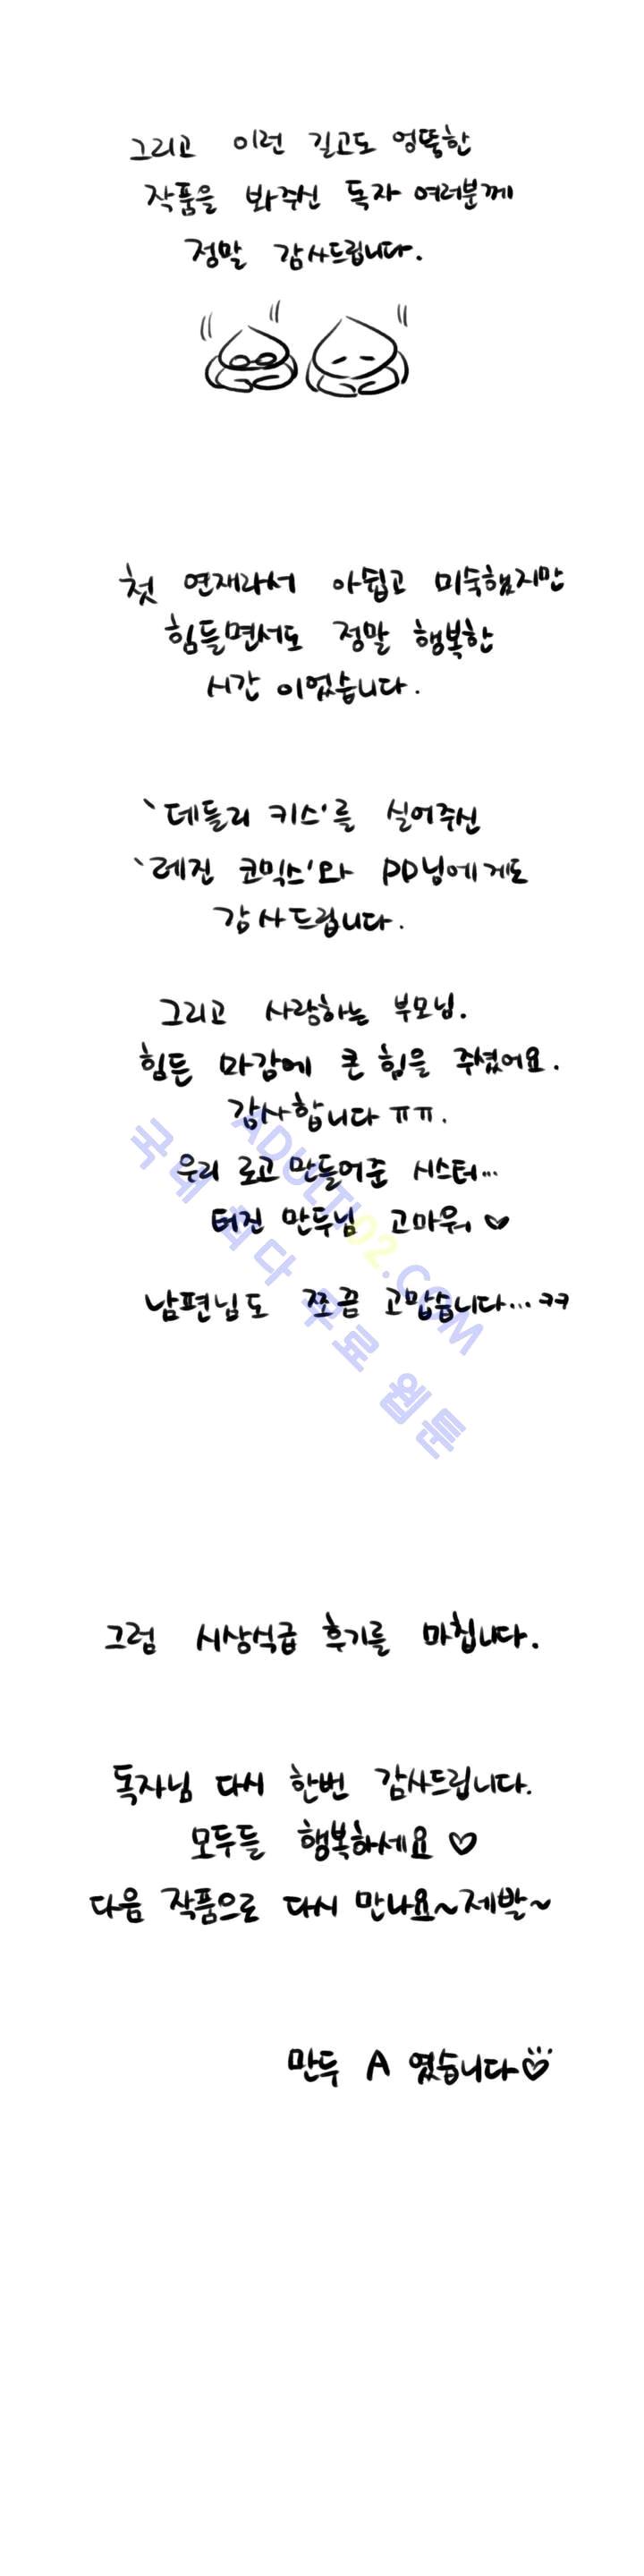 그리고 이런 길고도 엉뚱한
작품을 봐주신 독자 여러분께
정말 감사드립니다.
첫 연재라서 아쉽고 미숙했지만
힘들면서도 정말 행복한
시간 이었습니다.
`데들리 키스'를 실어주신
`레진 코믹스'와 PD님에게도
감사드립니다.
그리고 사랑하는 부모님.
힘든 마감에 큰 힘을 주셨어요.
감사합니다 ㅠㅠ.
우리 로고 만들어준 시스터...
터진 만두님 고마워 ♡
남편님도 쪼끔 고맙습니다...ㅋㅋ
ADULTI02.COM
국내 최다 무료 웹툰
그럼 시상식급 후기를 마칩니다.
독자님 다시 한번 감사드립니다.
모두들 행복하세요 ♡
다음 작품으로 다시 만나요~제발~
만두 A 였습니다♡